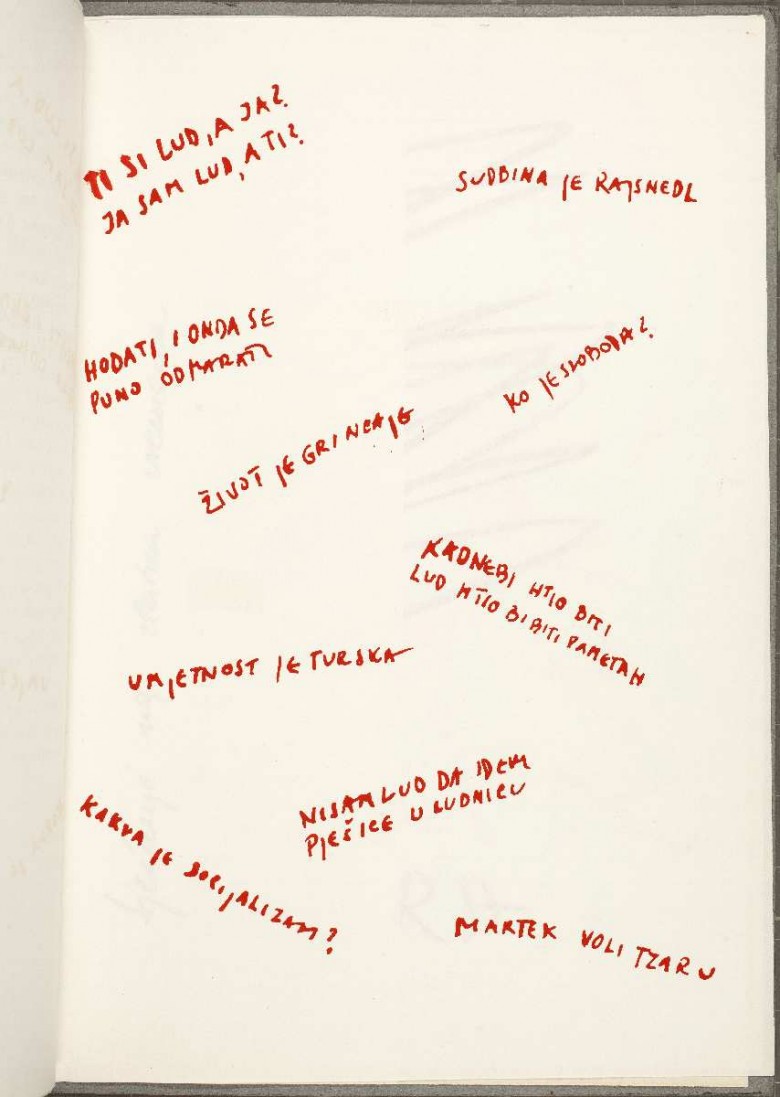 TI SI LUD, A JA?
JA SAM LUD, A TI?
SUDBINA JE RAJSNEDL
HODATI, I ONDA SE
PUNO ODMARATI
KO JE SLOBODA?
ŽIVOT JE GRINCAJE
KAD NEBI HTIO BITI
LUD HTIO BI BITI PAMETAN
UMJETNOST JE TURSKA
NISAM LUD DA IDEM
PJEŠICE U LUDNICU
KAKVA JE SOCIJALIZAM?
MARTEK VOLI TZARU